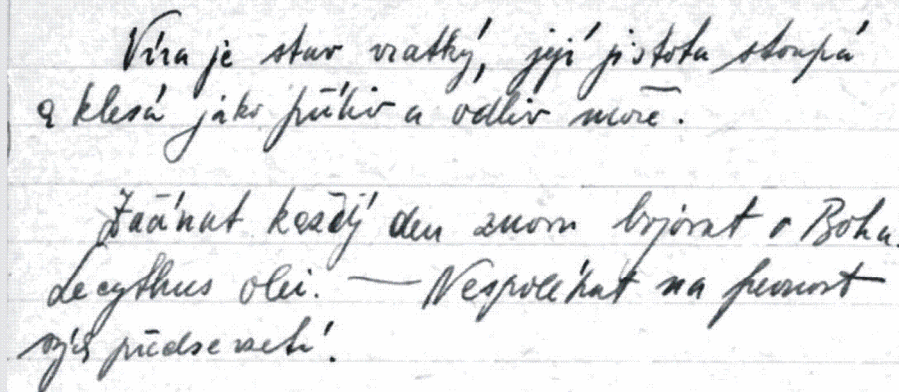 Víra je stav vratký, její jistota stoupá
a klesá jako příliv a odliv moře.
Začínat každý den znovu bojovat o Boha.
Lecythus olei. — Nespoléhat na pevnost
svých předsevzetí.